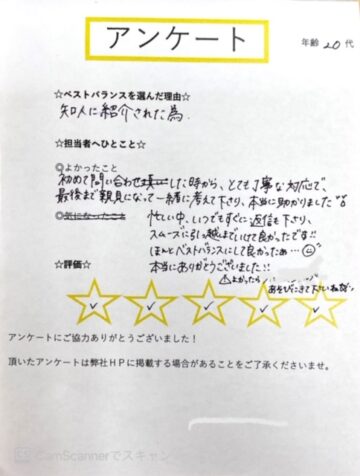 アンケート
年齢 20 代
☆ベストバランスを選んだ理由☆
知人に紹介された為.
☆担当者へひとこと☆
◎よかったこと
初めて問い合わせした時から、とても丁寧な対応で、
最後まで親身になって一緒に考えて下さり、本当に助かりました
◎気になったこと
忙しい中、いつもすぐに返信も下さり、
スムーズに引っ越までいけて良かったです!!
ほんとベストバランスにして良かったぁ…
本当にありがとうございました!!
☆評価☆
よかったら
あそびにきて下さいね
アンケートにご協力ありがとうございました!
頂いたアンケートは弊社HPに掲載する場合があることをご了承くださいませ。
CS CamScannerでスキャン